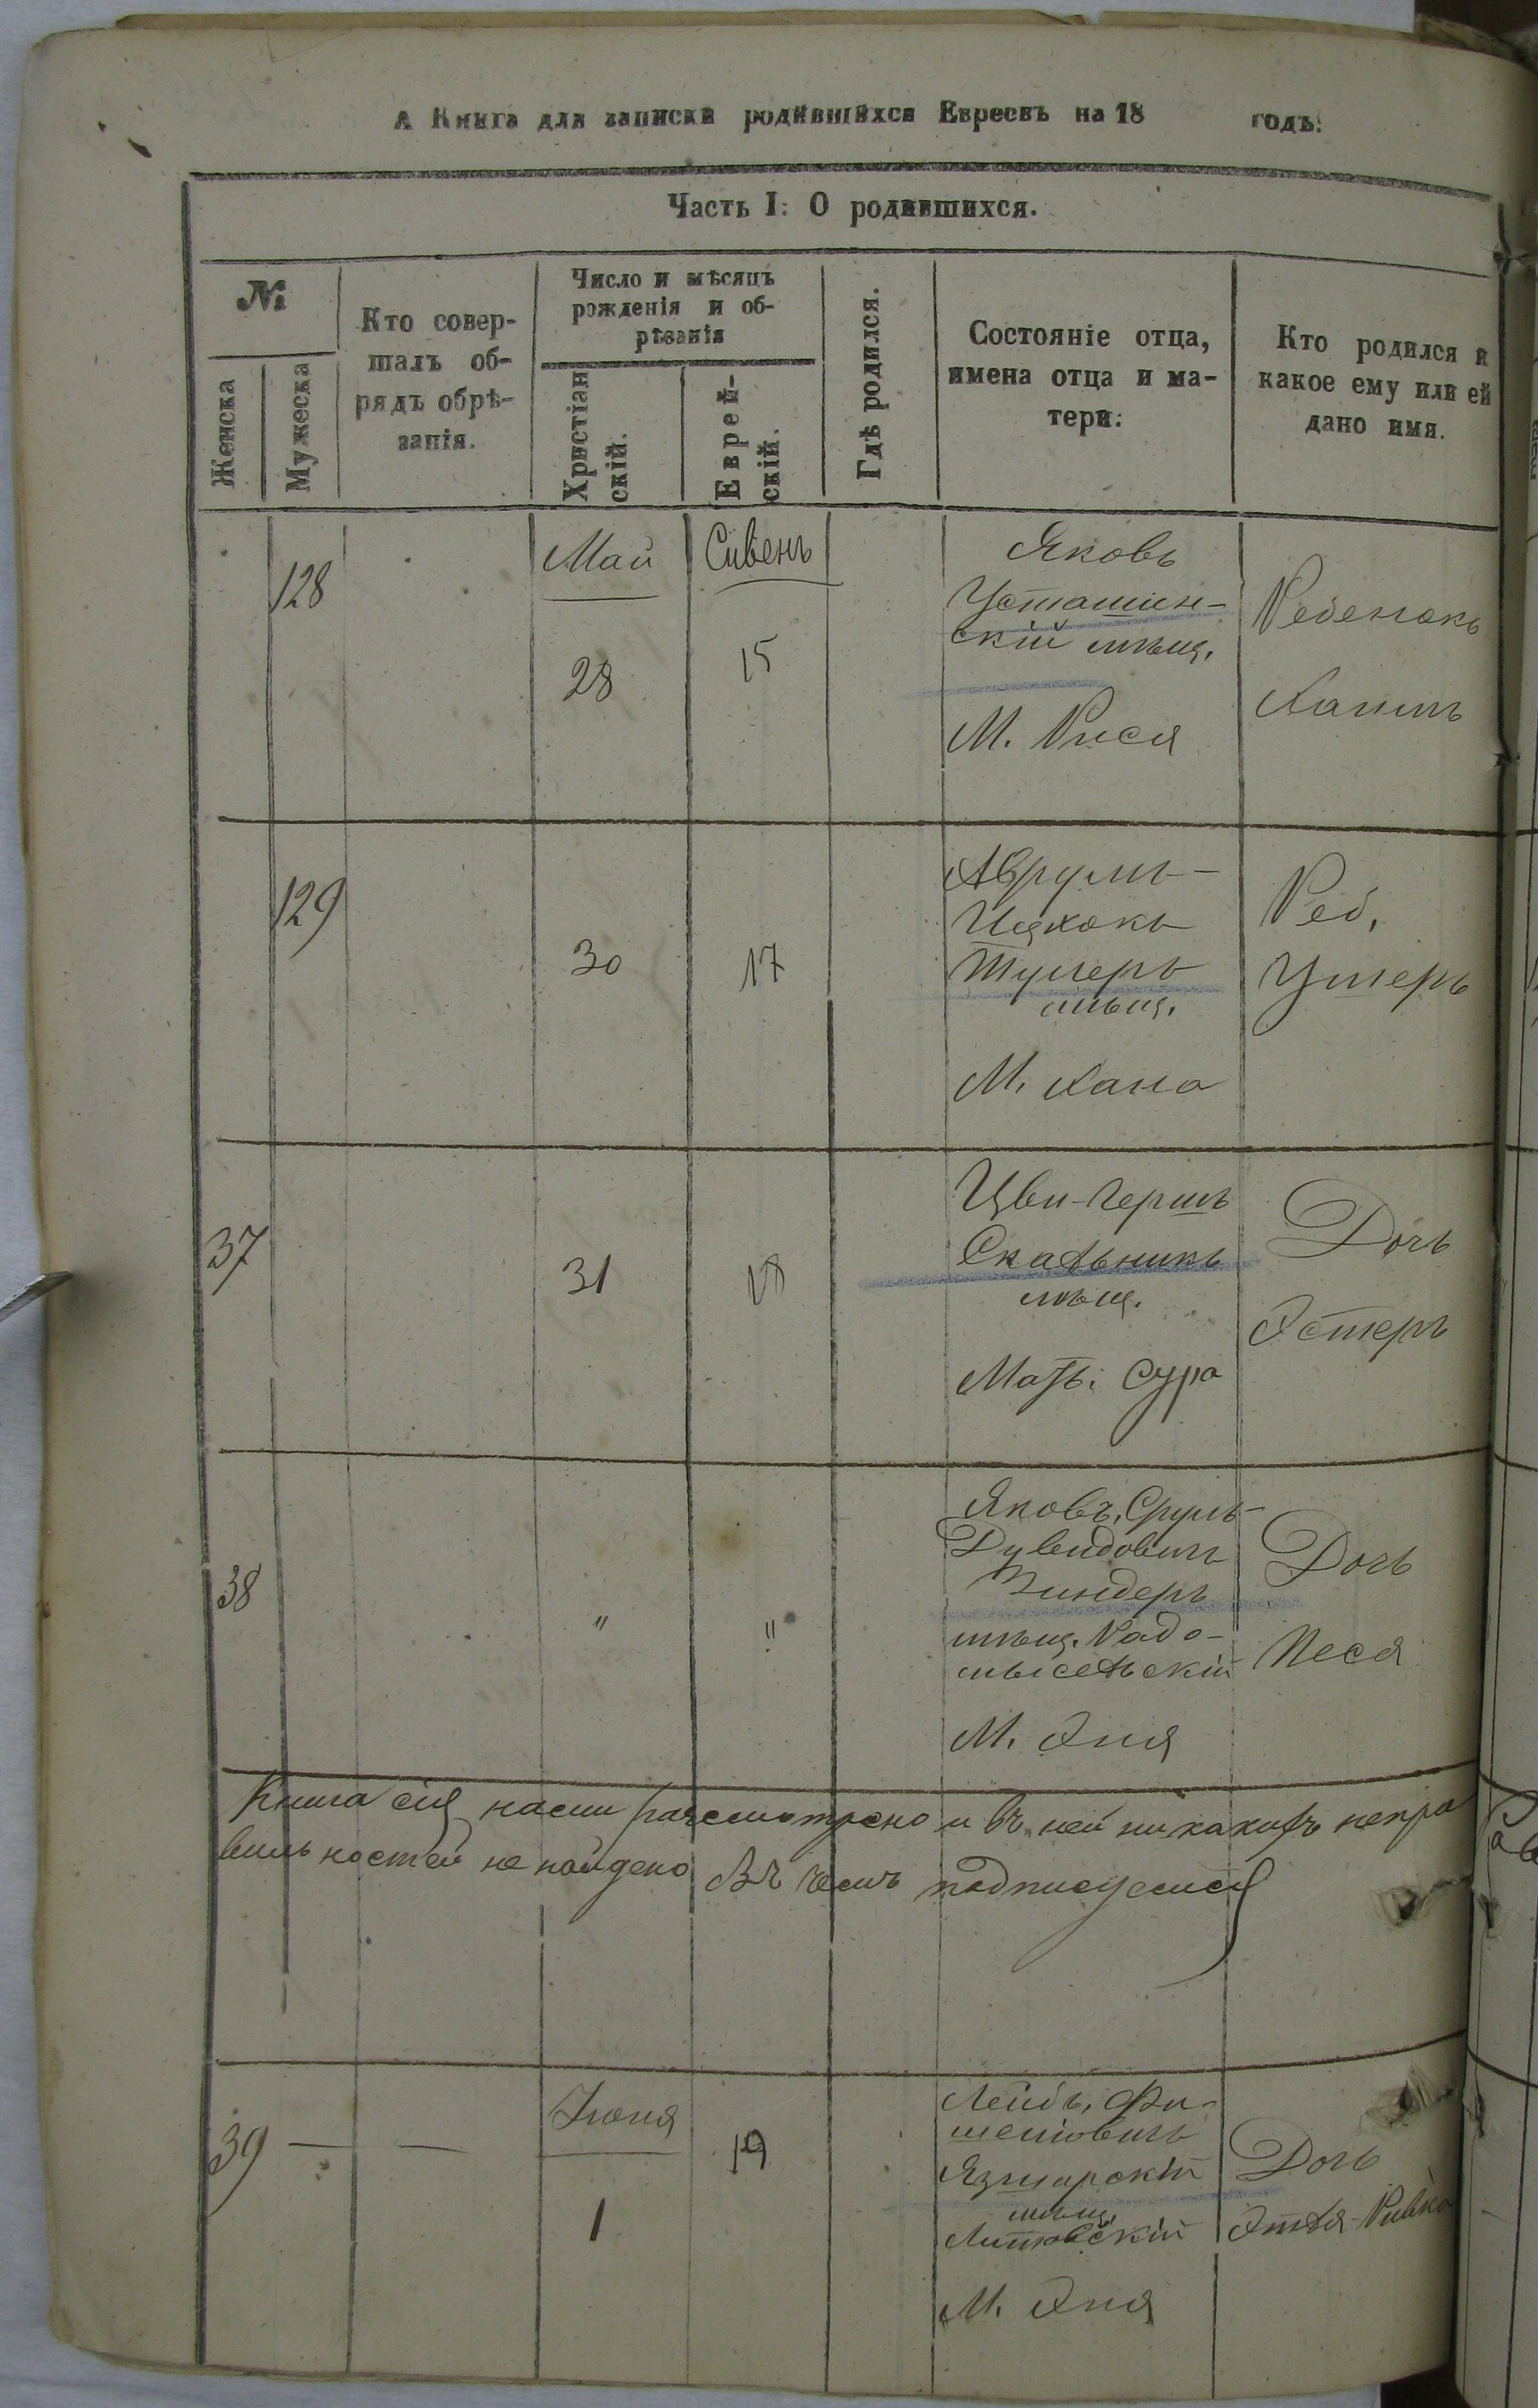 А Книга для записки родившихся Евреевъ на 18 годъ:
Часть I: О родившихся.
№
Женска
Мужеска
Кто совер-
шалъ об-
рядъ обрѣ-
занія.
Число и мѣсяцъ
рожденія и об-
рѣзанія
Христіан
скій.
Еврей-
скій.
Гдѣ родился.
Состояніе отца,
имена отца и ма-
тери:
Кто родился и
какое ему или ей
дано имя.
128
Май
28
Сивенъ
15
Яковъ
Усташин-
скій мѣщ.
М. Рися
Ребенокъ
Хаимъ
129
30
17
Аврумъ-
Ицхокъ
мѣщ.
М. Хана
Реб.
Ушеръ
37
31
18
Цви-Гершъ
Скальникъ
мѣщ.
Мать: Сура
Дочь
Эстеръ
38
"
"
Яковъ, Сруль-
Дувидовичъ
Зиндеръ
мѣщ. Радо-
мысельскій
М. Эня
Дочь
Песя
Книга сія нами разсмотрено и въ ней никакихъ непра
вильностей не найдено въ чемъ подписуемся
39 — —
Іюня
1
19
Лейбъ, Фи-
шеловичъ
мѣщ.
М. Эня
Дочь
Этля-Ривка